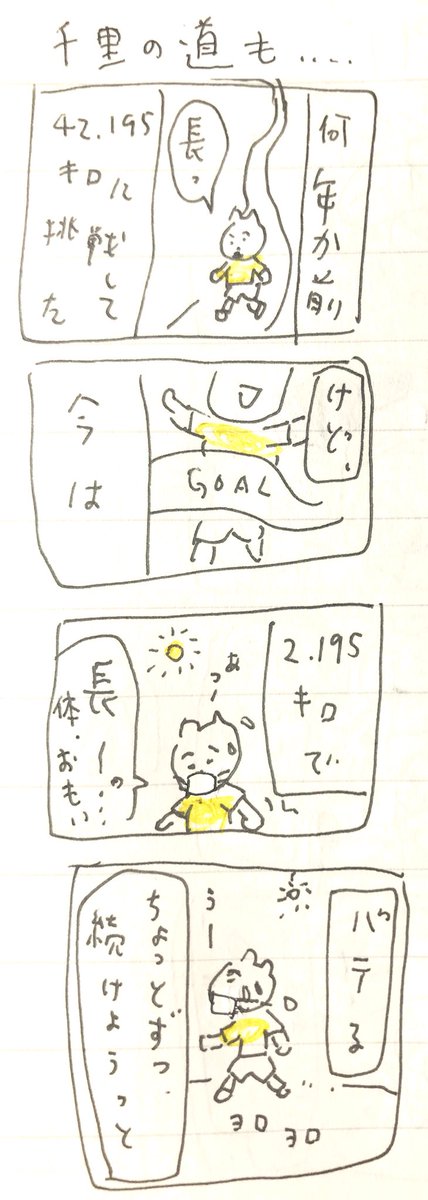 千里の道も....
何年か前
長っ
42.195
キロに
挑戦して
た
けど、
GOAL
今は
2.195
キロで
あっー
長ーの…
体、おもい
バテる
うー
ヨロヨロ
ちょっとずつ、
続けようっと